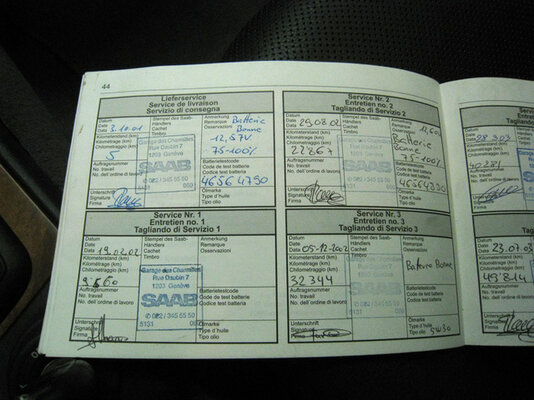 44
Lieferservice
Service de livraison
Servizio di consegna
Datum
Date
Data
3.10.01
Stempel des Saab-
Händlers
Cachet
Timbro
Anmerkung
Remarque
Osservazioni
Batterie
Bonne
12,57V
75-100%
Kilometerstand (km)
Kilométrage (km)
Chilometraggio (km)
5
Garage des Charmilles
Rue Daubin 7
1203 Genève
SAAB
✆ 022 / 345 55 50
5131
Auftragsnummer
No. travail
No. dell'ordine di lavoro
Batterietestcode
Code de test batterie
Codice test batteria
46564790
Unterschrift
Signature
Firma
Ölmarke
Type d'huile
Tipo olio
Service Nr. 2
Entretien no. 2
Tagliando di Servizio 2
Datum
Date
Data
29.08.02
Stempel des Saab-
Händlers
Cachet
Timbro
Anmerkung
Remarque
Osservazioni
Batterie
Bonne
75-100%
Kilometerstand (km)
Kilométrage (km)
Chilometraggio (km)
Auftragsnummer
No. travail
No. dell'ordine di lavoro
Batterietestcode
Code de test batterie
Codice test batteria
Unterschrift
Signature
Firma
Ölmarke
Type d'huile
Tipo olio
Service Nr. 1
Entretien no. 1
Tagliando di Servizio 1
Datum
Date
Data
19.02.02
Stempel des Saab-
Händlers
Cachet
Timbro
Anmerkung
Remarque
Osservazioni
Kilometerstand (km)
Kilométrage (km)
Chilometraggio (km)
Garage des Charmilles
Rue Daubin 7
1203 Genève
SAAB
✆ 022 / 345 55 50
5131
000
Auftragsnummer
No. travail
No. dell'ordine di lavoro
Batterietestcode
Code de test batterie
Codice test batteria
Unterschrift
Signature
Firma
Ölmarke
Type d'huile
Tipo olio
Service Nr. 3
Entretien no. 3
Tagliando di Servizio 3
Datum
Date
Data
05-12-2002
Stempel des Saab-
Händlers
Cachet
Timbro
Anmerkung
Remarque
Osservazioni
Kilometerstand (km)
Kilométrage (km)
Chilometraggio (km)
32344
Bonne
Auftragsnummer
No. travail
No. dell'ordine di lavoro
Batterietestcode
Code de test batterie
Codice test batteria
Unterschrift
Signature
Firma
Ölmarke
Type d'huile
Tipo olio
5W30
Datum
Date
Data
28.3.03
Kilometerstand (km)
Kilométrage (km)
Auftragsnummer
No. travail
Unterschrift
Signature
Firma
Datum
Date
Data
Kilometerstand (km)
Kilométrage (km)
Auftragsnummer
No. travail
Unterschrift
Signature
Firma